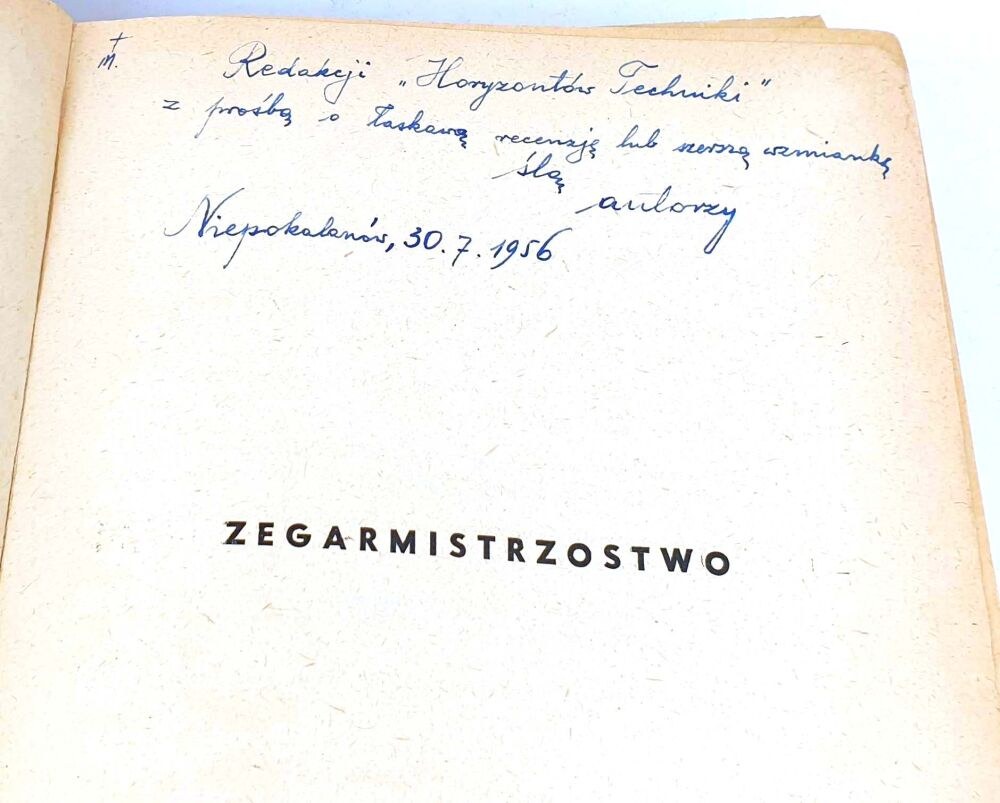 +
m.
Redakcji „Horyzontów Techniki"
z prośbą o łaskawą recenzję lub szerszą wzmiankę
ślą
autorzy
Niepokalanów, 30.7.1956
ZEGARMISTRZOSTWO